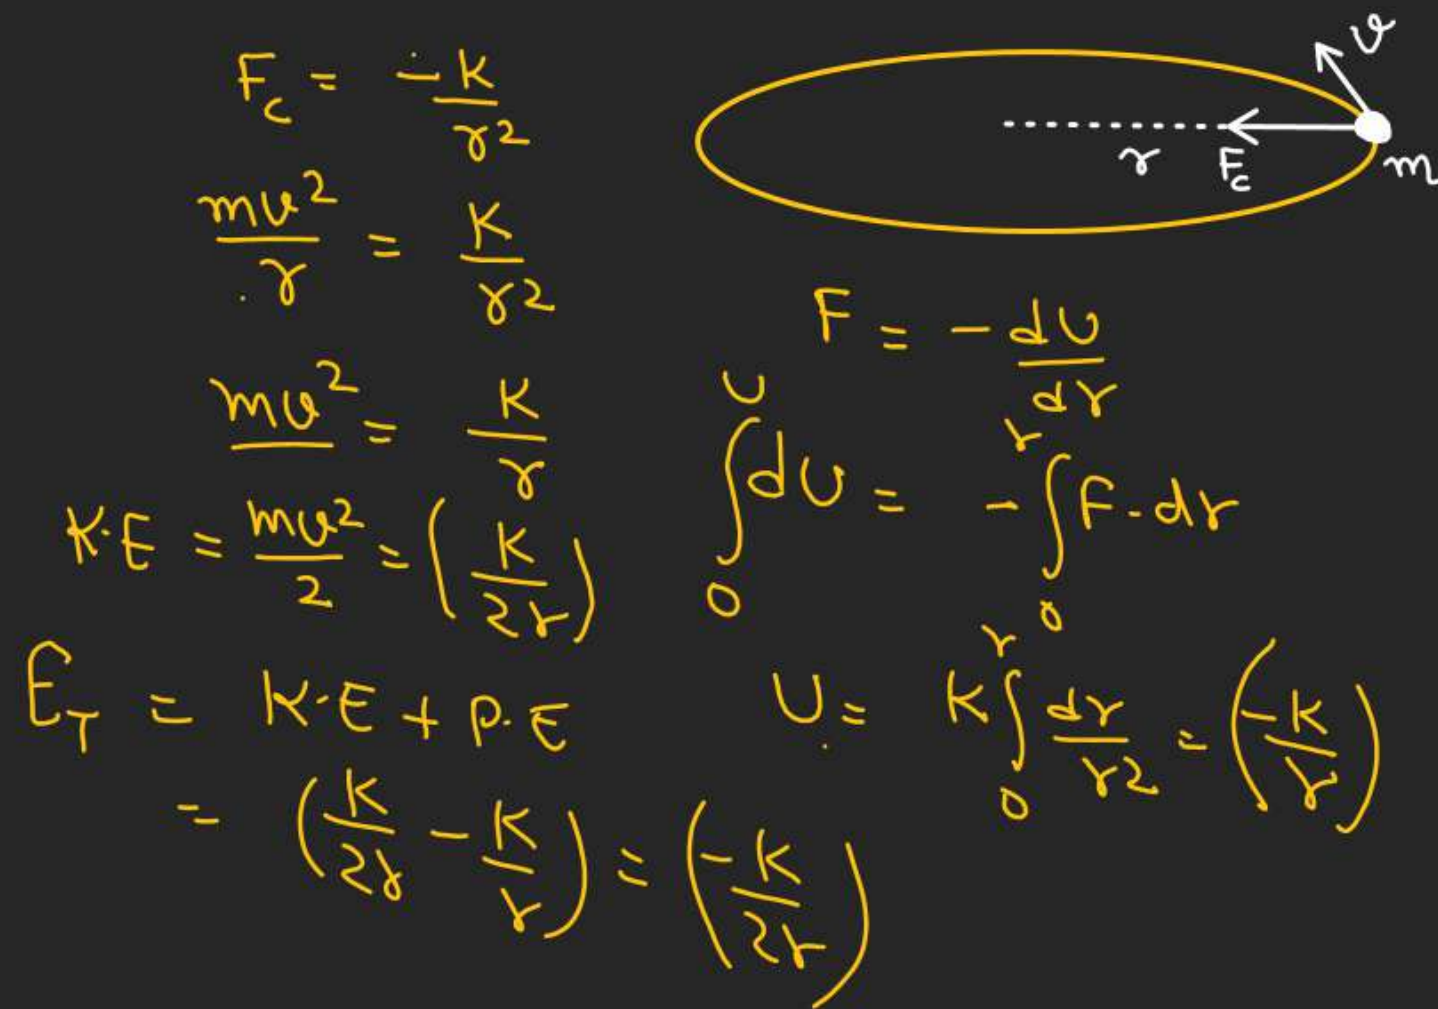 F_c = -K/r²
mv²/r = K/r²
mv² = K/r
K.E = mv²/2 = (K/2r)
E_T = K.E + P.E
= (K/2r - K/r) = (-K/2r)
v
r F_c m
F = -dU/dr
∫₀^U dU = -∫₀^r F.dr
U = K ∫₀^r dr/r² = (-K/r)